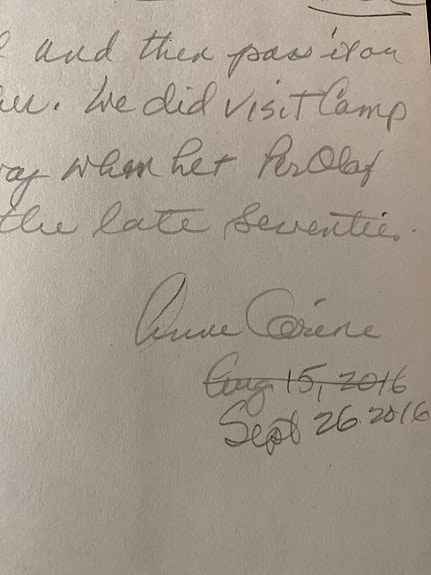 and then pass it on
We did visit Camp
when her Per Olaf
the late Seventies.
Anne Corinne
Aug 15, 2016
Sept 26 2016